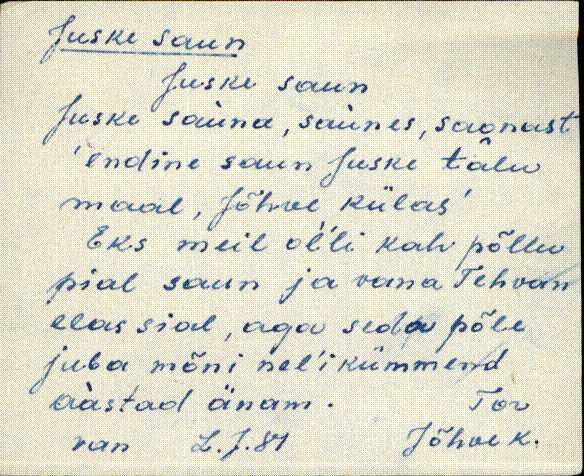 Juske saun
Juske saun
Juske sàuna, sàunes, saonast
'endine saun Juske tâlu
maal, Jõhve külas'
Eks meil ol'li kah põllu
pial saun ja vana Tehvan
elas sial, aga seda põle
juba mõni nel'ikümmend
àastad änam. Tor
van L.J.81 Jõhve k.